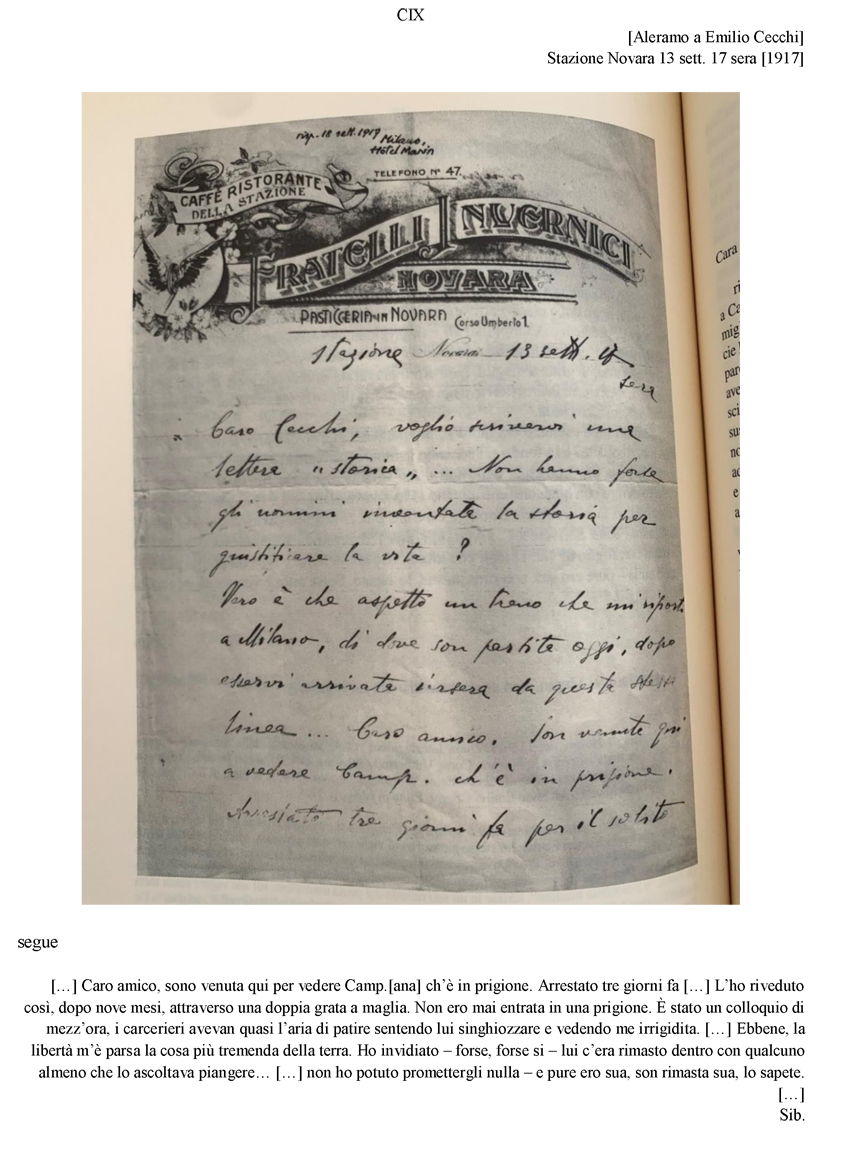 CIX
[Aleramo a Emilio Cecchi]
Stazione Novara 13 sett. 17 sera [1917]
risp. 18 sett. 1917 Milano,
Hôtel Marin
TELEFONO Nº 47.
CAFFÈ RISTORANTE
DELLA STAZIONE
FRATELLI INVERNICI
NOVARA
PASTICCERIA IN NOVARA Corso Umberto 1.
Stazione Novara 13 sett. 17
sera
Caro Cecchi, voglio scrivervi una
lettera "storica„ ... Non hanno forse
gli uomini inventata la storia per
giustificare la vita ?
Vero è che aspetto un treno che mi riporti
a Milano, di dove son partita oggi, dopo
esservi arrivata iersera da questa stessa
linea ... Caro amico. Son venuta qui
a vedere Camp. ch'è in prigione.
Arrestato tre giorni fa per il solito
Cara
ri
a Ca
mig
cie
par
ave
sci
su
no
ac
e
a
segue
[…] Caro amico, sono venuta qui per vedere Camp.[ana] ch'è in prigione. Arrestato tre giorni fa […] L'ho riveduto
così, dopo nove mesi, attraverso una doppia grata a maglia. Non ero mai entrata in una prigione. È stato un colloquio di
mezz'ora, i carcerieri avevan quasi l'aria di patire sentendo lui singhiozzare e vedendo me irrigidita. […] Ebbene, la
libertà m'è parsa la cosa più tremenda della terra. Ho invidiato – forse, forse si – lui c'era rimasto dentro con qualcuno
almeno che lo ascoltava piangere… […] non ho potuto promettergli nulla – e pure ero sua, son rimasta sua, lo sapete.
[…]
Sib.